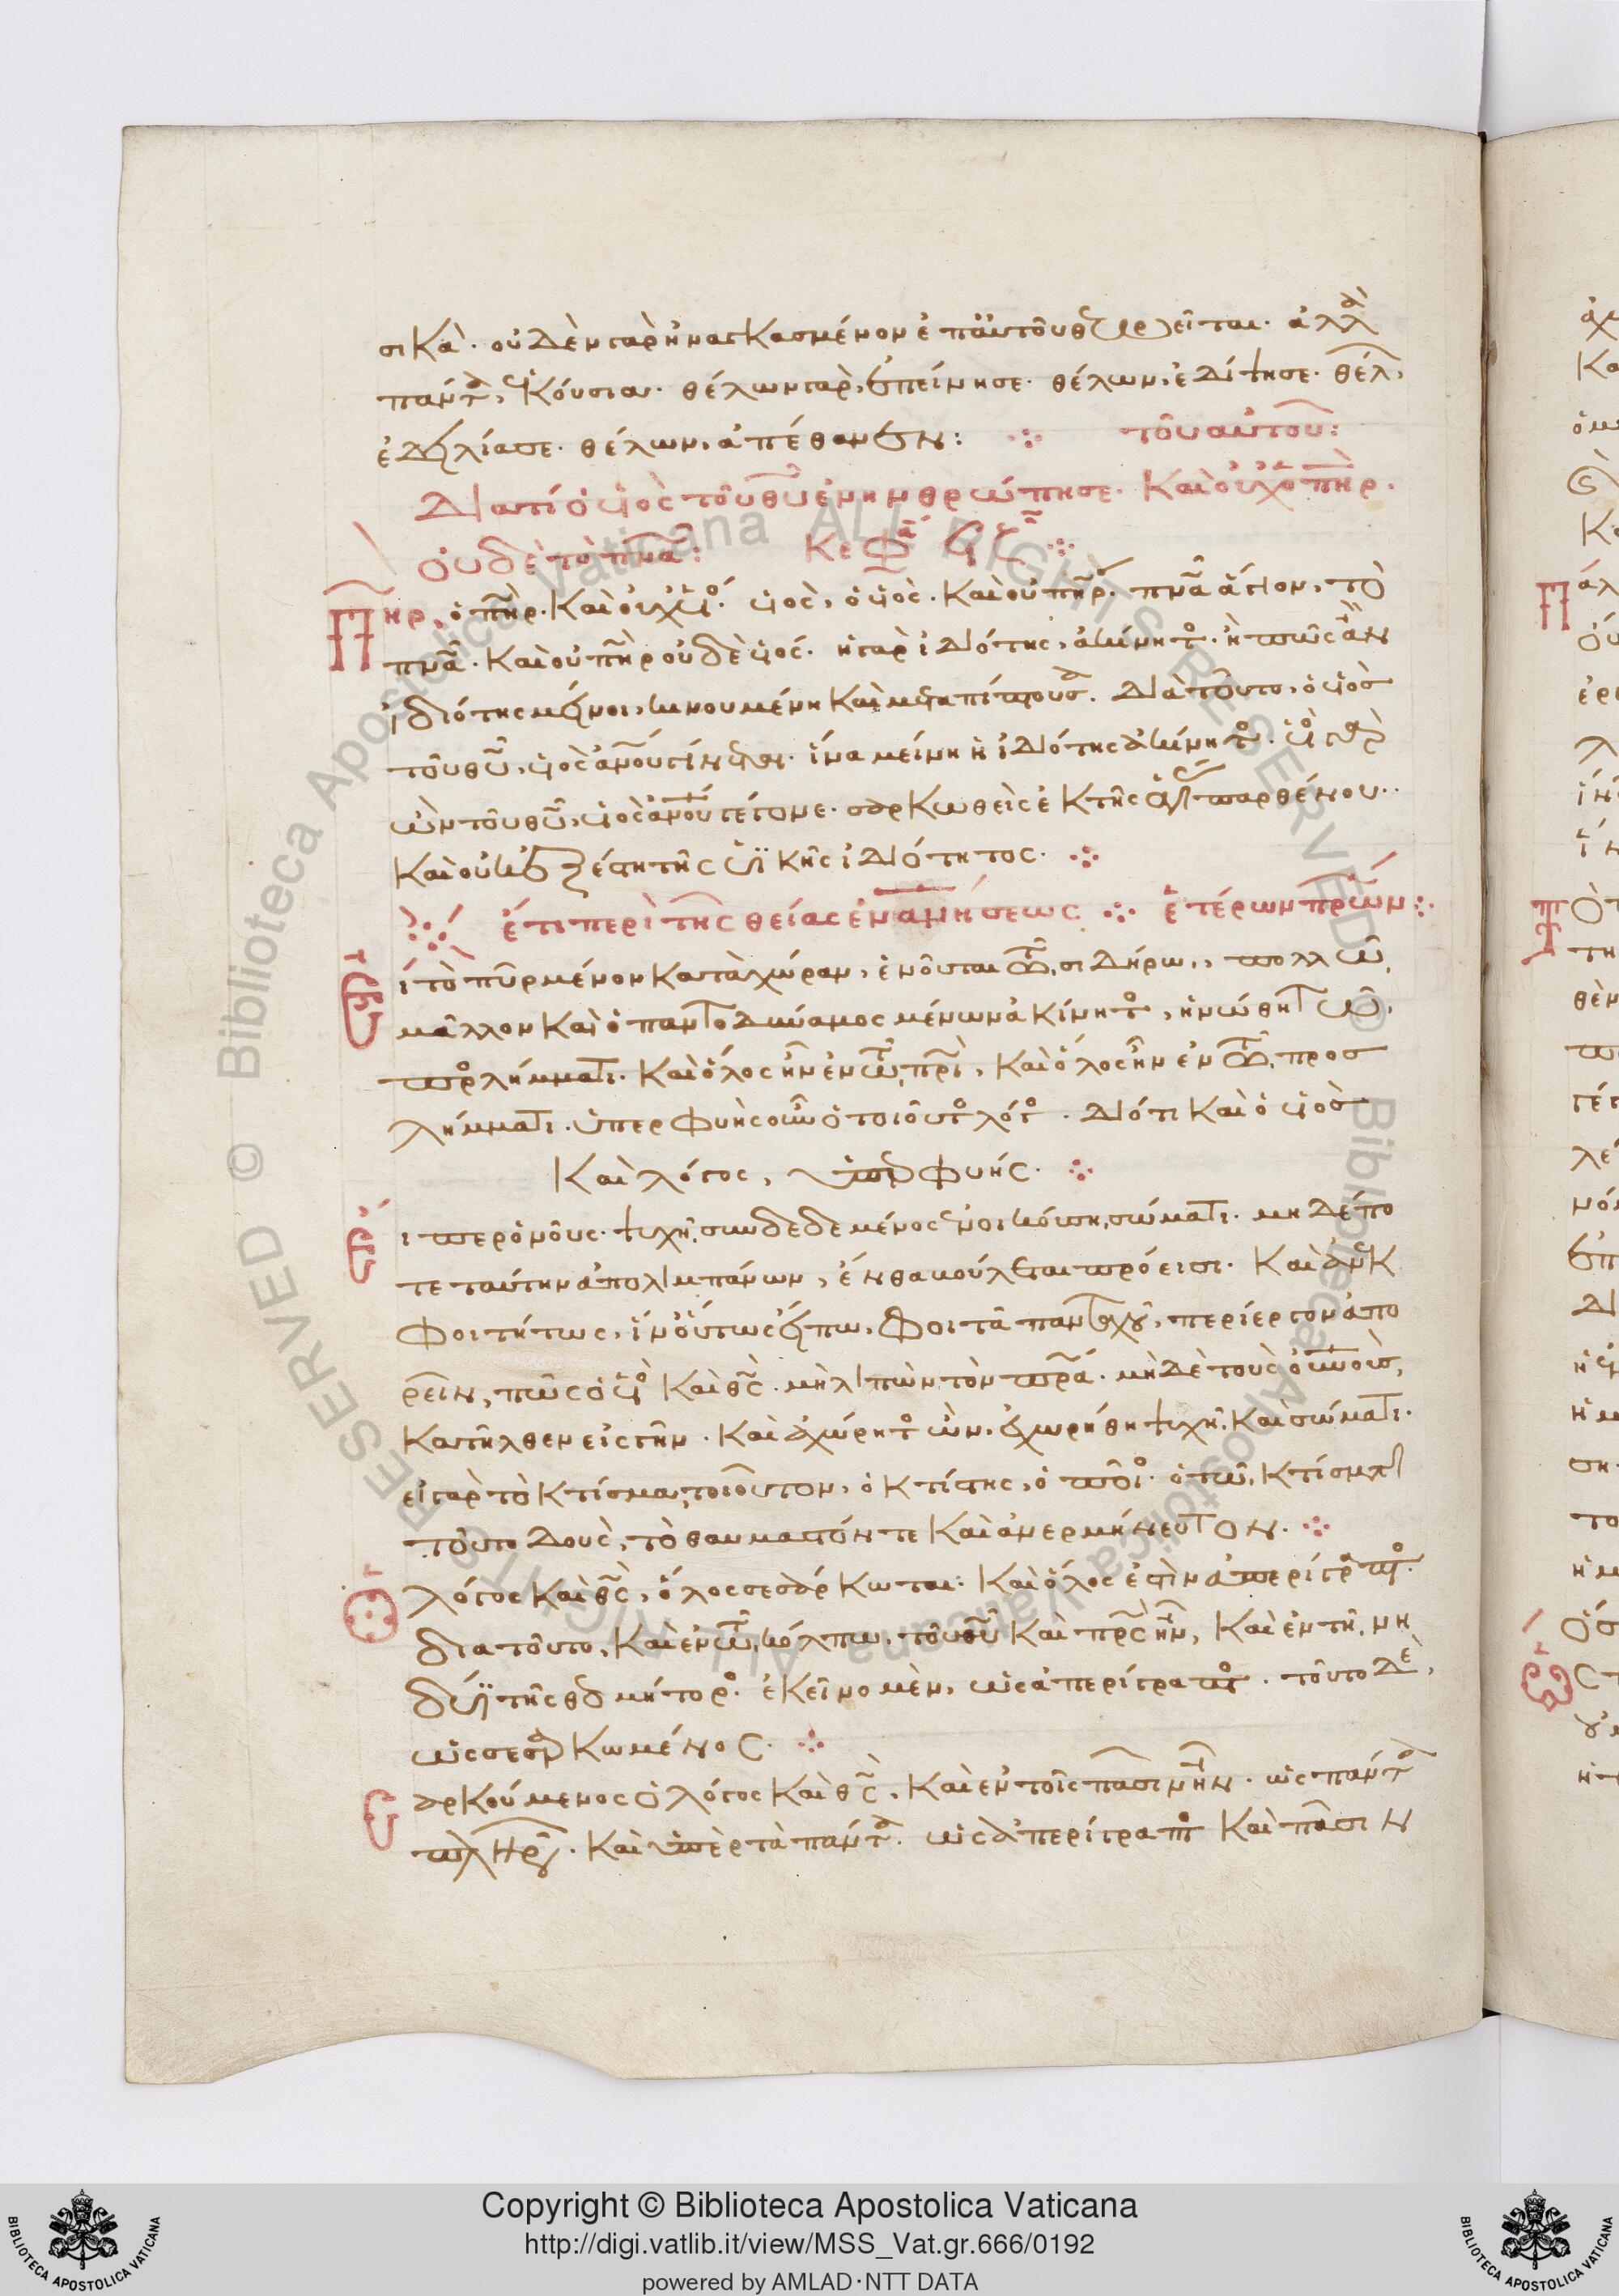 σικά· οὐδὲν γὰρ ἠναγκασμένον ἐπ' αὐτοῦ θεωρεῖται· ἀλλὰ
πάντα, ἑκούσια· θέλων γὰρ, ἐπείνησε· θέλων, ἐδίψησε· θέλ,
ἐδειλίασε· θέλων, ἀπέθανεν: τοῦ αὐτοῦ:
Διατί ὁ υἱὸς τοῦ θυ ἐνηνθρώπησε· καὶ οὐχ ὁ πηρ·
οὐδὲ τὸ πνα: Κεφ
Πηρ, ὁ πηρ· καὶ οὐχ υἱός· υἱὸς, ὁ υἱός· καὶ οὐ πηρ· πνα ἅγιον, τὸ
πνα· καὶ οὐ πηρ οὐδὲ υἱός· ἡ γὰρ ἰδιότης, ἀκίνητος· ἢ πῶς ἂν
ἰδιότης μένοι, κινουμένη καὶ μεταπίπτουσα· Διατοῦτο, ὁ υἱὸς
τοῦ θυ, υἱὸς ἀνου γίνεται· ἵνα μείνη ἡ ἰδιότης ἀκίνητος· υἱὸς γὰρ
ὢν τοῦ θυ, υἱὸς ἀνου γέγονε· σαρκωθεὶς ἐκ τῆς ἁγίας παρθένου·
καὶ οὐκ ἐξέστη τῆς υἱϊκῆς ἰδιότητος·
ἔτι περὶ τῆς θείας ἐνανήσεως ἑτέρων πρων:
Εἰ τὸ πῦρ μένον κατὰ χώραν, ἑνοῦται τῶ σιδήρω, πολλῶ
μᾶλλον καὶ ὁ παντοδύναμος μένων ἀκίνητος, ἡνώθη τῶ
προσλήμματι· καὶ ὅλος ἦν ἐν τῶ πρι, καὶ ὅλος ἦν ἐν τῶ προσ
λήμματι· ὑπερφυὴς οὖν ὁ τοιοῦτος λόγος· Διότι καὶ ὁ υἱὸς
καὶ λόγος, ὑπερφυής·
Εἴπερ ὁ νοῦς· ψυχῆ συνδεδεμένος ἐνοικόυση, σώματι· μηδέπο
τε ταύτην ἀπολιμπάνων, ἔνθα βούλεται πρόεισι· καὶ ἀνεκ
φοιτήτως, ἵν' οὕτως εἴπω, φοιτᾶ πανταχοῦ, περίεργον ἀπο
ρεῖν, πῶς ὁ υἱὸς καὶ θς· μὴ λιπὼν τὸν πρα· μηδὲ τοὺς οὐνους,
κατῆλθεν εἰς γῆν· καὶ ἀχώρητος ὢν, ἐχωρήθη ψυχῆ καὶ σώματι·
εἰ γὰρ τὸ κτίσμα, τοιοῦτον, ὁ κτίστης, ὁ ποῖος· ὁ τῶ κτίσματι
τοῦτο δοὺς, τὸ θαυμαστόν τε καὶ ἀνερμήνευτον·
Ὁ λόγος καὶ θς, ὅλος σεσάρκωται· καὶ ὅλος ἐστὶν ἀπερίγραπτος·
διατοῦτο, καὶ ἐν τῶ κόλπω, τοῦ θυ καὶ πρς ἦν, καὶ ἐν τῆ μη
δύϊ τῆς θυ μήτορος· ἐκεῖνο μὲν, ὡς ἀπερίγραπτος· τοῦτο δὲ,
ὡς σεσαρκωμένος·
Σαρκούμενος ὁ λόγος καὶ θς, καὶ ἐν τοῖς πᾶσιν ἦν· ὡς πάντα
πληρῶν· καὶ ὑπὲρ τὰ πάντα· ὡς ἀπερίγραπτος καὶ πᾶσιν
Copyright © Biblioteca Apostolica Vaticana
http://digi.vatlib.it/view/MSS_Vat.gr.666/0192
powered by AMLAD·NTT DATA